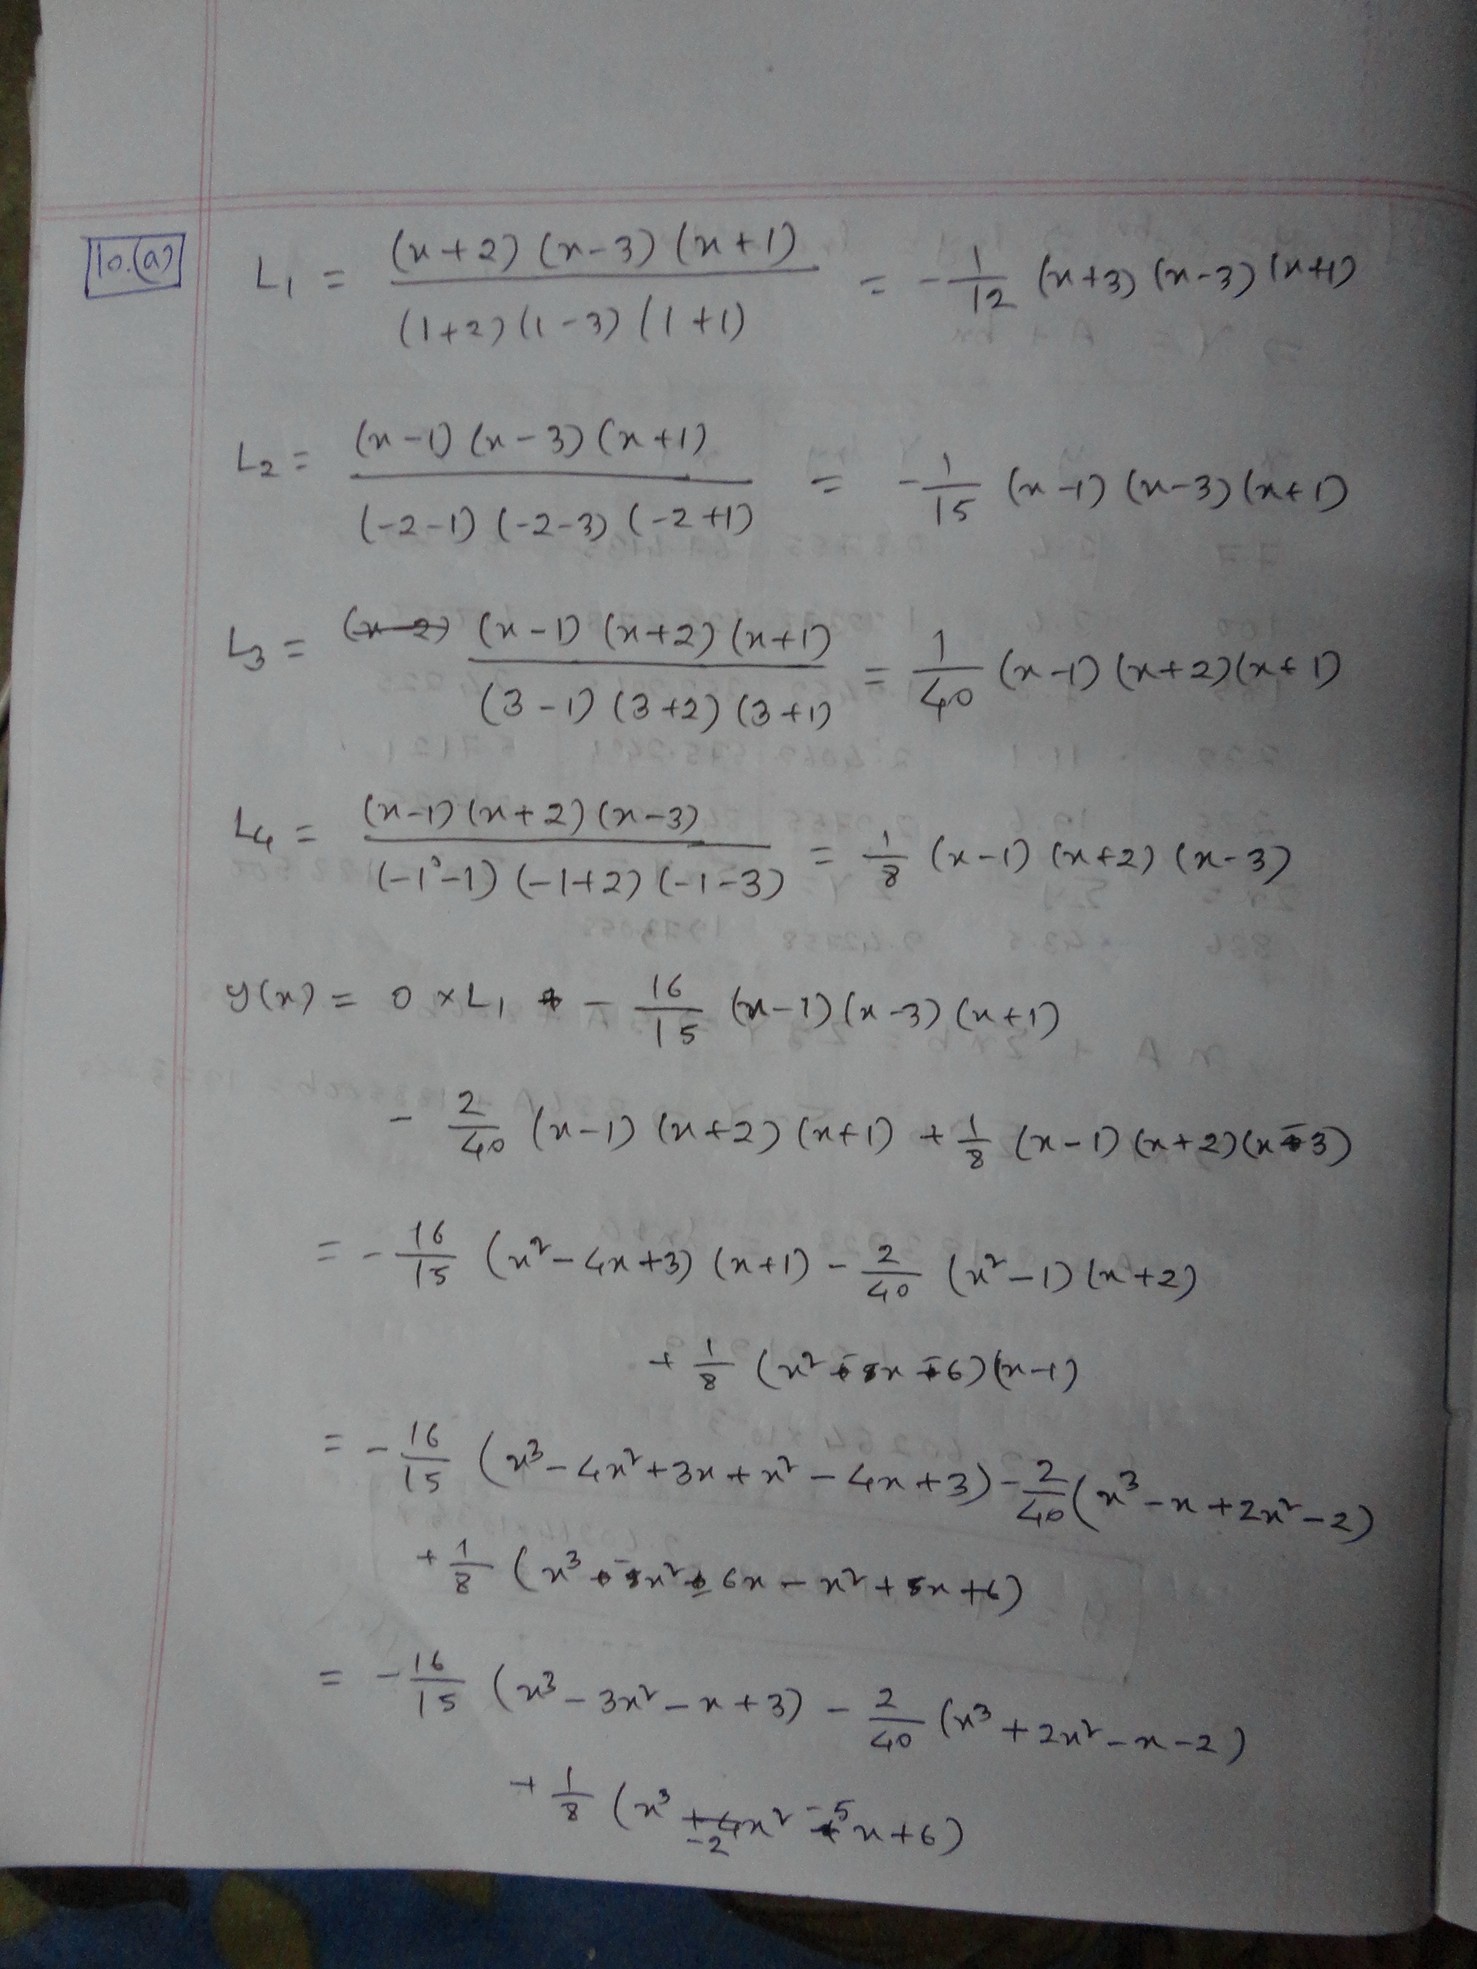 10.(a)
L₁ = (x+2)(x-3)(x+1) / (1+2)(1-3)(1+1) = -1/12 (x+3)(x-3)(x+1)
L₂ = (x-1)(x-3)(x+1) / (-2-1)(-2-3)(-2+1) = -1/15 (x-1)(x-3)(x+1)
L₃ = (x-1)(x+2)(x+1) / (3-1)(3+2)(3+1) = 1/40 (x-1)(x+2)(x+1)
L₄ = (x-1)(x+2)(x-3) / (-1-1)(-1+2)(-1-3) = 1/8 (x-1)(x+2)(x-3)
y(x) = 0 × L₁ - 16/15 (x-1)(x-3)(x+1)
- 2/40 (x-1)(x+2)(x+1) + 1/8 (x-1)(x+2)(x-3)
= - 16/15 (x²-4x+3)(x+1) - 2/40 (x²-1)(x+2)
+ 1/8 (x²-x-6)(x-1)
= - 16/15 (x³-4x²+3x+x²-4x+3) - 2/40 (x³-x+2x²-2)
+ 1/8 (x³-x²-6x-x²+x+6)
= - 16/15 (x³-3x²-x+3) - 2/40 (x³+2x²-x-2)
+ 1/8 (x³-2x²-5x+6)